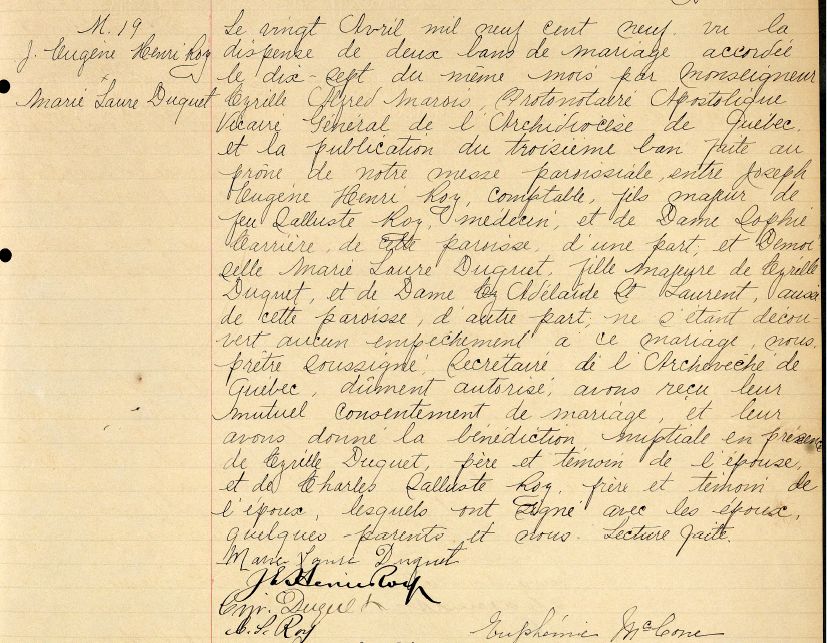 M. 19
J. Eugène Henri Roy
+
Marie Laure Duquet
Le vingt Avril mil neuf cent neuf. vu la
dispense de deux bans de mariage accordée
le dix-sept du même mois par monseigneur
Cyrille Alfred Marois, Protonotaire Apostolique
Vicaire Général de l'Archidiocèse de Québec.
et la publication du troisième ban faite au
prône de notre messe paroissiale, entre Joseph
Eugène Henri Roy, comptable, fils majeur de
feu Salluste Roy, médecin, et de Dame Sophie
Carrière, de cette paroisse, d'une part, et Demoi
selle Marie Laure Duquet, fille majeure de Cyrille
Duquet, et de Dame Adélaide St Laurent, aussi
de cette paroisse, d'autre part, ne s'étant décou-
vert aucun empêchement à ce mariage, nous,
prêtre soussigné, Secrétaire de l'Archevêché de
Québec, dûment autorisé, avons reçu leur
mutuel consentement de mariage, et leur
avons donné la bénédiction nuptiale en présence
de Cyrille Duquet, père et témoin de l'épouse,
et de Charles Salluste Roy, frère et témoin de
l'époux, lesquels ont signé avec les époux,
quelques parents et nous. Lecture faite.
Marie Laure Duquet
J E Henri Roy
Cyr. Duquet
C. S. Roy
Euphémie McCone